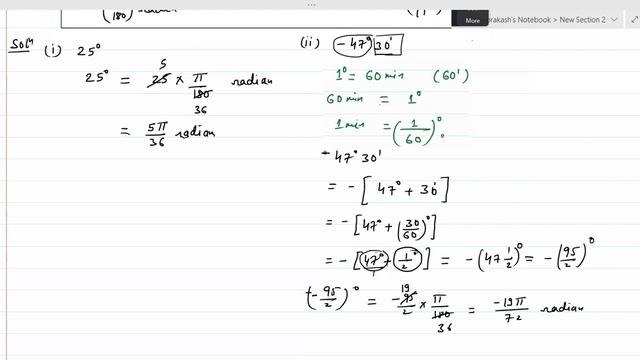 180
prakash's Notebook > New Section 2
Solⁿ (i) 25°
25° = 25 5 × π/180 36 radian
= 5π/36 radian
(ii) -47° 30'
1° = 60 min (60')
60 min = 1°
1 min = (1/60)°
-47° 30'
= -[47° + 30']
= -[47° + (30/60)°]
= -[47° + 1/2°] = -(47 1/2)° = -(95/2)°
(-95/2)° = -95/2 19 × π/180 36 = -19π/72 radian